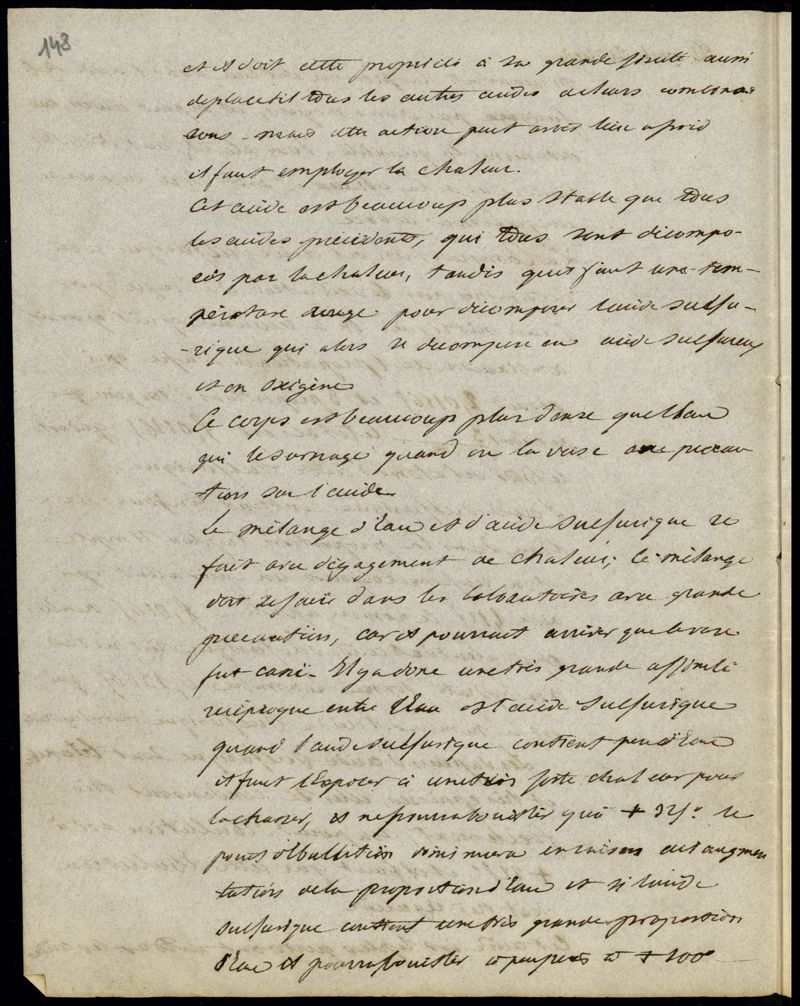 148
et il doit cette propriété à sa grande fixité aussi
deplace til tous les autres acides de leurs combinai
sons - mais cette action peut avoir lieu à froid
il faut employer la chaleur.
Cet acide est beaucoup plus stable que tous
les acides précédents, qui tous sont décompo-
sés par la chaleur, tandis qu'il faut une tem-
pérature rouge pour décomposer l'acide sulfu-
-rique qui alors se décompose en acide sulfureux
et en oxigène
Ce corps est beaucoup plus dense que l'eau
qui le surnage quand on la verse avec précau
tions sur l'acide
Le mélange d'eau et d'acide sulfurique se
fait avec dégagement de chaleur; le mélange
doit se faire dans les laboratoires avec grande
précautions, car il pourrait arriver que le vase
fut cassé - Il y a donc une très grande affinité
réciproque entre l'eau et l'acide sulfurique
quand l'acide sulfurique contient peu d'eau
il faut l'exposer à une très forte chaleur pour
la chasser, il ne pourra bouillir qu'à + 325° le
point d'ébullition diminuera en raison de l'augmen
tation de la proportion d'eau et si l'acide
sulfurique contient une très grande proportion
d'eau il pourra bouillir à peu près à + 100°